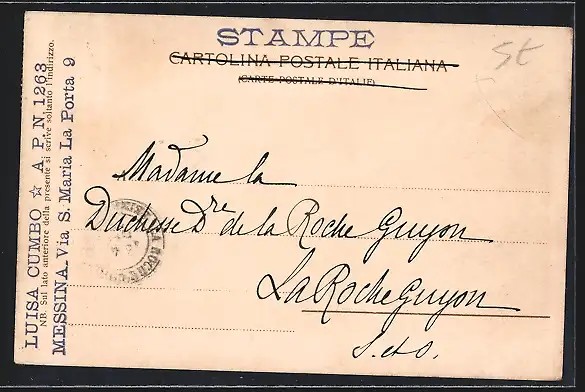 STAMPE
CARTOLINA POSTALE ITALIANA
(CARTE POSTALE D'ITALIE)
St
LUISA CUMBO ☆ A. P. N 1263
NB. Sul lato anteriore della presente si scrive soltanto l'indirizzo.
MESSINA. Via S. Maria La Porta 9
Madame la
Duchesse Dre de la Roche Guyon
La Roche Guyon
S. et O.
LA ROCHE